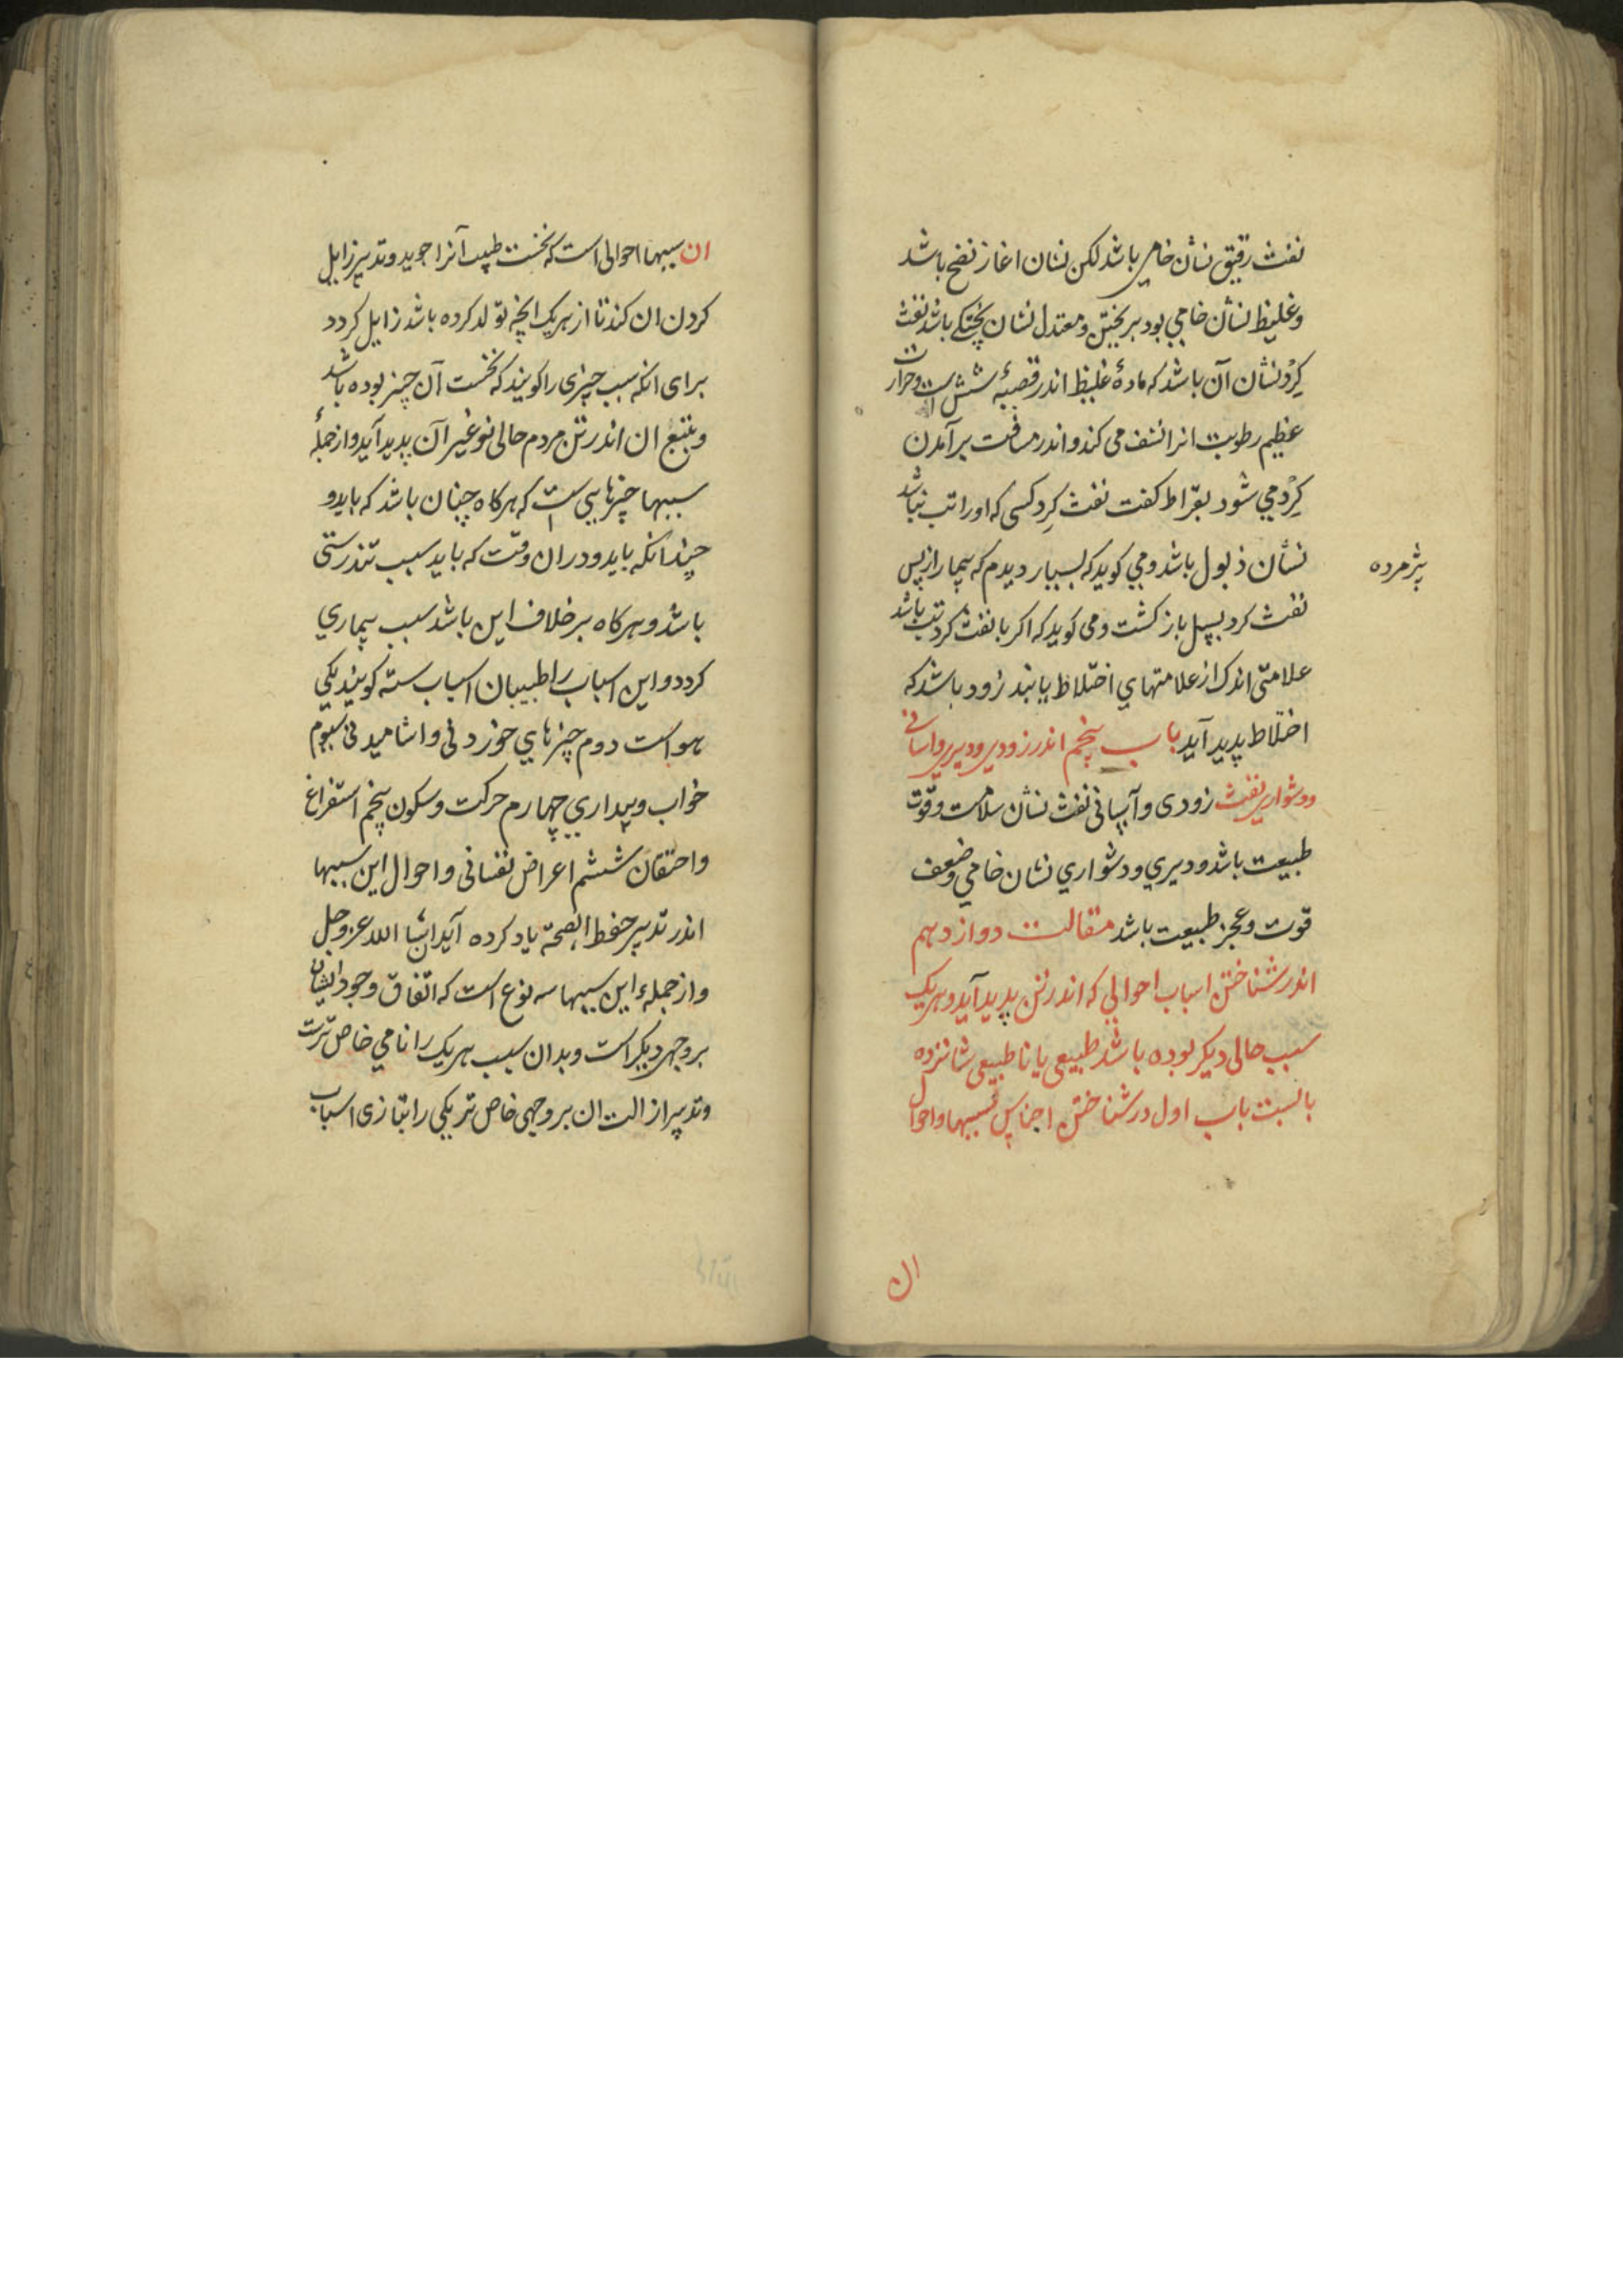 نفث رقیق نشان خامی باشد لکن نشان اغاز نضج باشد
وغلیظ نشان خامی بود بریختن ومعتدل نشان پختگی باشد نفث
کرد نشان آن باشد که مادهٔ غلیظ اندر قصبهٔ شش است وحرارت
عظیم رطوبت انرا نشف می کند و اندر مسافت برآمدن
کرد می شود بقراط کفت نفث کرد کسی که اورا تب نباشد
نشان ذبول باشد ومی کوید که بسیار دیدم که بیمار از پس
پژمرده
نفث کرد بسل باز کشت ومی کوید که اکر با نفث کرد تب باشد
علامتی اندک از علامتهای اختلاط یابند زود باشد که
اختلاط پدید آید باب پنجم اندر زودی ودیری واسانی
ودشواری نفث زودی وآسانی نفث نشان سلامت وقوت
طبیعت باشد ودیری ودشواری نشان خامی وضعف
قوت وعجز طبیعت باشد مقالت دوازدهم
اندر شناختن اسباب احوالی که اندر تن پدید آید وهریک
سبب حالی دیکر بوده باشد طبیعی یا ناطبیعی شانزده
بابست باب اول در شناختن اجناس سببها واحوال
ان
ان سببها احوالی است که نخست طبیب آنرا جوید وتدبیر زایل
کردن ان کند تا از هریک انچه تولد کرده باشد زایل کردد
برای انکه سبب چیزی را کویند که نخست آن چیز بوده باشد
وبتبع ان اندر تن مردم حالی نو غیر آن پدید آید واز جملهٔ
سببها چیزهایی است که هرکاه چنان باشد که باید و
چندانکه باید ودران وقت که باید سبب تندرستی
باشد وهرکاه برخلاف این باشد سبب بیماری
کردد واین اسباب را طبیبان اسباب سته کویند یکی
هواست دوم چیزهای خوردنی واشامیدنی سیوم
خواب وبیداری چهارم حرکت وسکون پنجم استفراغ
واحتقان ششم اعراض نفسانی واحوال این سببها
اندر تدبیر حفظ الصحة یاد کرده آید انشاء الله عز وجل
واز جملهء این سببها سه نوع است که اتفاق وجود ایشان
بر وجهی دیکر است وبدان سبب هریک را نامی خاص ترست
وتدبیر ازالت ان بر وجهی خاص تر یکی را بتازی اسباب